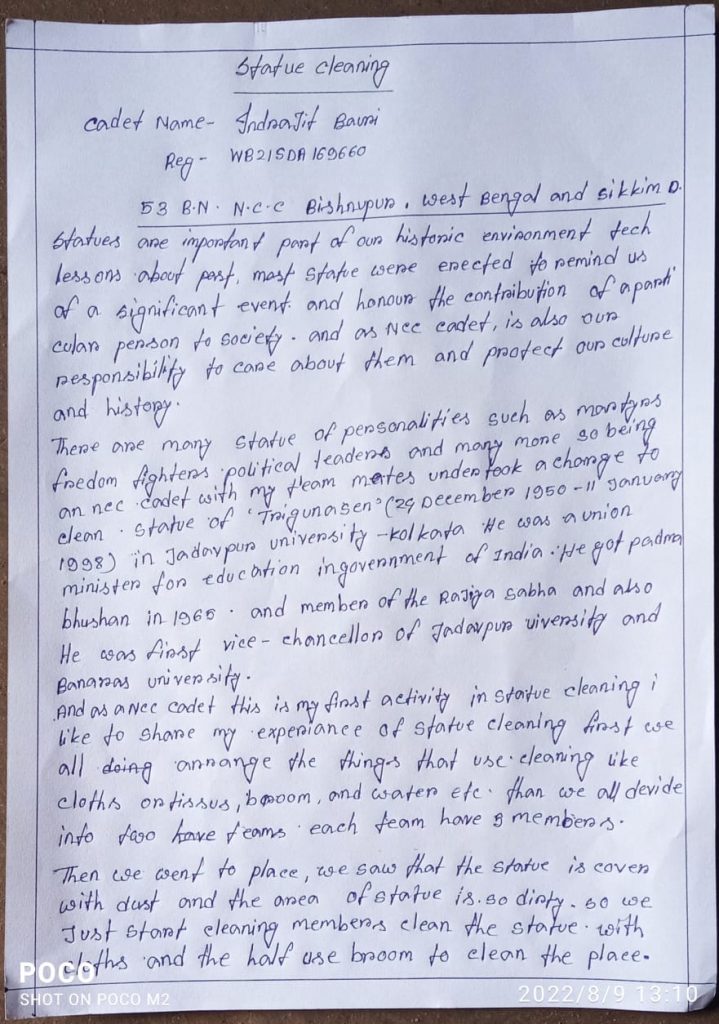 Statue cleaning
Cadet Name- IndraJit Bauri
Reg- WB21SDA169660
53 B.N. N.C.C Bishnupur, West Bengal and Sikkim D.
Statues are important part of our historic environment tech
lessons about past, most statue were erected to remind us
of a significant event and honour the contribution of a parti
cular person to society. and as Ncc cadet, is also our
responsibility to care about them and protect our culture
and history.
There are many statue of personalities such as martyrs
freedom fighters political leaders and many more so being
an ncc cadet with my team mates undertook a charge to
clean statue of "Trigunasen" (24 December 1950 - 11 January
1998) in Jadavpur university - kolkata He was a union
minister for education in government of India. He got padma
bhushan in 1965. and member of the Rajiya Sabha and also
He was first vice-chancellor of Jadavpur viversity and
Banaras university.
And as a Ncc cadet this is my first activity in statue cleaning i
like to share my experiance of statue cleaning first we
all doing arrange the things that use cleaning like
cloths or tissus, broom, and water etc. than we all devide
into two have teams each team have members.
Then we went to place, we saw that the statue is cover
with dust and the area of statue is so dirty. so we
Just start cleaning members clean the statue with
cloths and the half use broom to clean the place.
POCO
SHOT ON POCO M2
2022/8/9 13:10